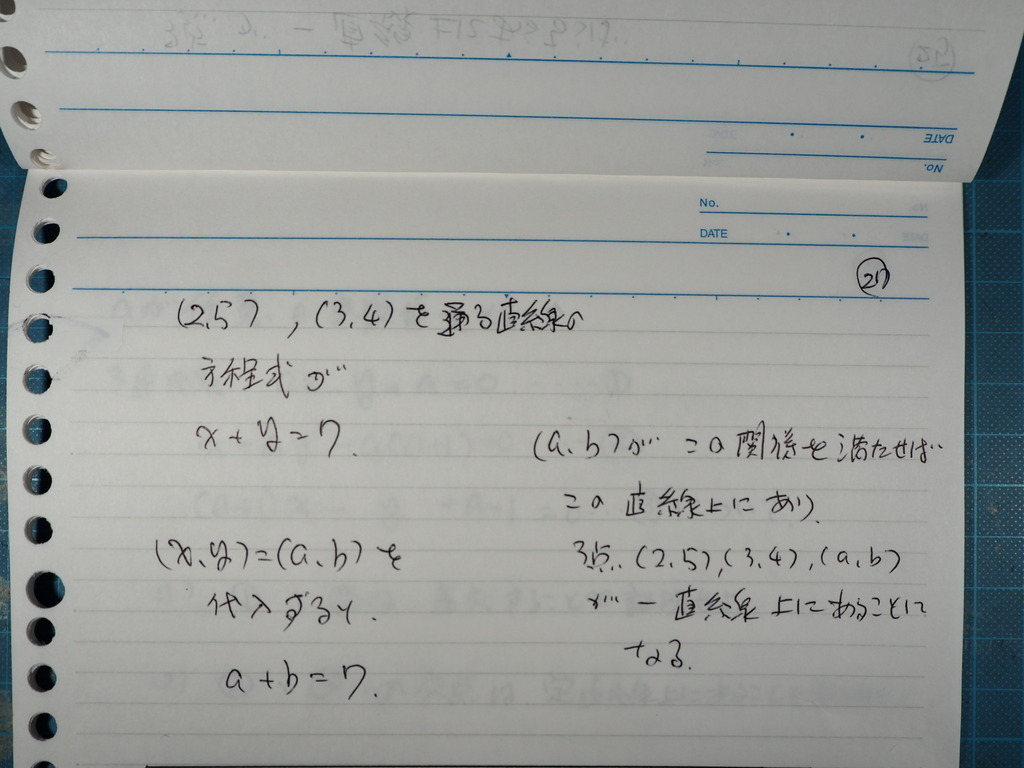 DATE
No.
No.
DATE
(2,5), (3,4)を通る直線の
方程式が
x+y=7.
(x,y)=(a,b)を
代入すると.
a+b=7.
(a,b)が この関係を満たせば
この直線上にあり、
3点、(2,5),(3,4),(a,b)
が一直線上にあることに
なる.